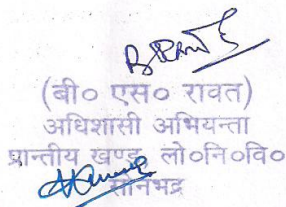 (बी० एस० रावत)
अधिशासी अभियन्ता
प्रान्तीय खण्ड, लो०नि०वि०
सोनभद्र